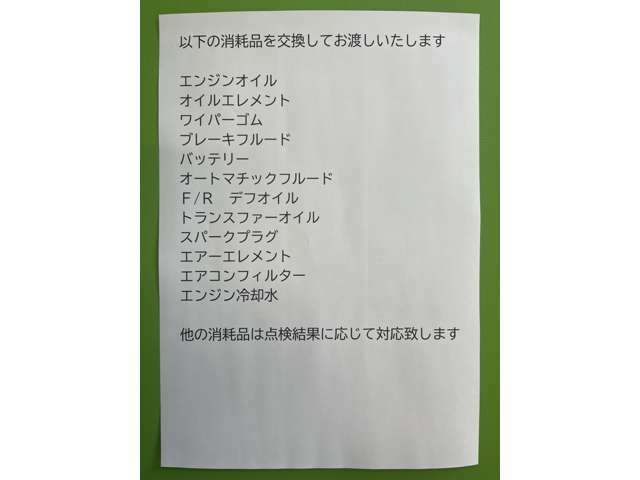 以下の消耗品を交換してお渡しいたします
エンジンオイル
オイルエレメント
ワイパーゴム
ブレーキフルード
バッテリー
オートマチックフルード
F/R　デフオイル
トランスファーオイル
スパークプラグ
エアーエレメント
エアコンフィルター
エンジン冷却水
他の消耗品は点検結果に応じて対応致します